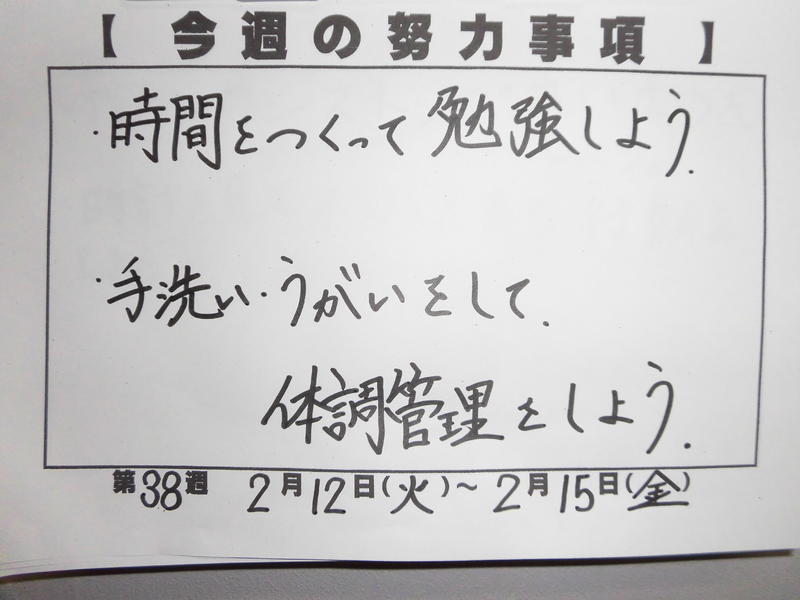 【 今週の努力事項 】
・時間をつくって勉強しよう.
・手洗い・うがいをして.
体調管理をしよう.
第38週 2月12日(火)～2月15日(金)